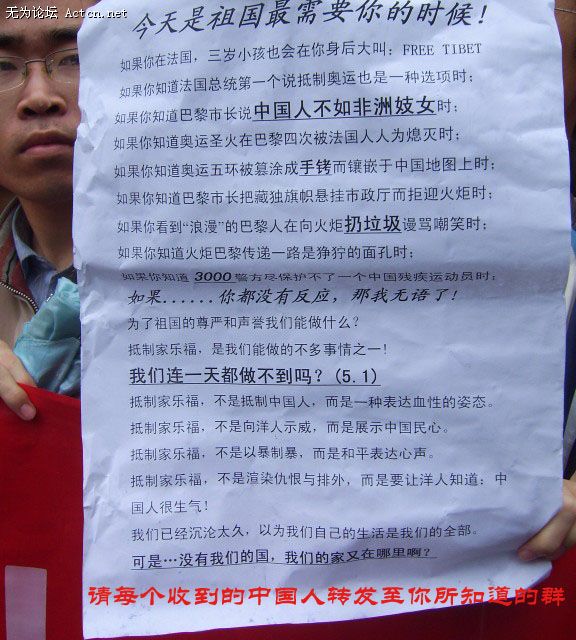 无为论坛 Actcn.net
今天是祖国最需要你的时候！
如果你在法国，三岁小孩也会在你身后大叫：FREE TIBET
如果你知道法国总统第一个说抵制奥运也是一种选项时；
如果你知道巴黎市长说中国人不如非洲妓女时；
如果你知道奥运圣火在巴黎四次被法国人人为熄灭时；
如果你知道奥运五环被篡涂成手铐而镶嵌于中国地图上时；
如果你知道巴黎市长把藏独旗帜悬挂市政厅而拒迎火炬时；
如果你看到“浪漫”的巴黎人在向火炬扔垃圾谩骂嘲笑时；
如果你知道火炬巴黎传递一路是狰狞的面孔时；
如果你知道 3000 警方尽保护不了一个中国残疾运动员时；
如果......你都没有反应，那我无语了！
为了祖国的尊严和声誉我们能做什么？
抵制家乐福，是我们能做的不多事情之一！
我们连一天都做不到吗？(5.1)
抵制家乐福，不是抵制中国人，而是一种表达血性的姿态。
抵制家乐福，不是向洋人示威，而是展示中国民心。
抵制家乐福，不是以暴制暴，而是和平表达心声。
抵制家乐福，不是渲染仇恨与排外，而是要让洋人知道：中
国人很生气！
我们已经沉沦太久，以为我们自己的生活是我们的全部。
可是…没有我们的国，我们的家又在哪里啊？
请每个收到的中国人转发至你所知道的群